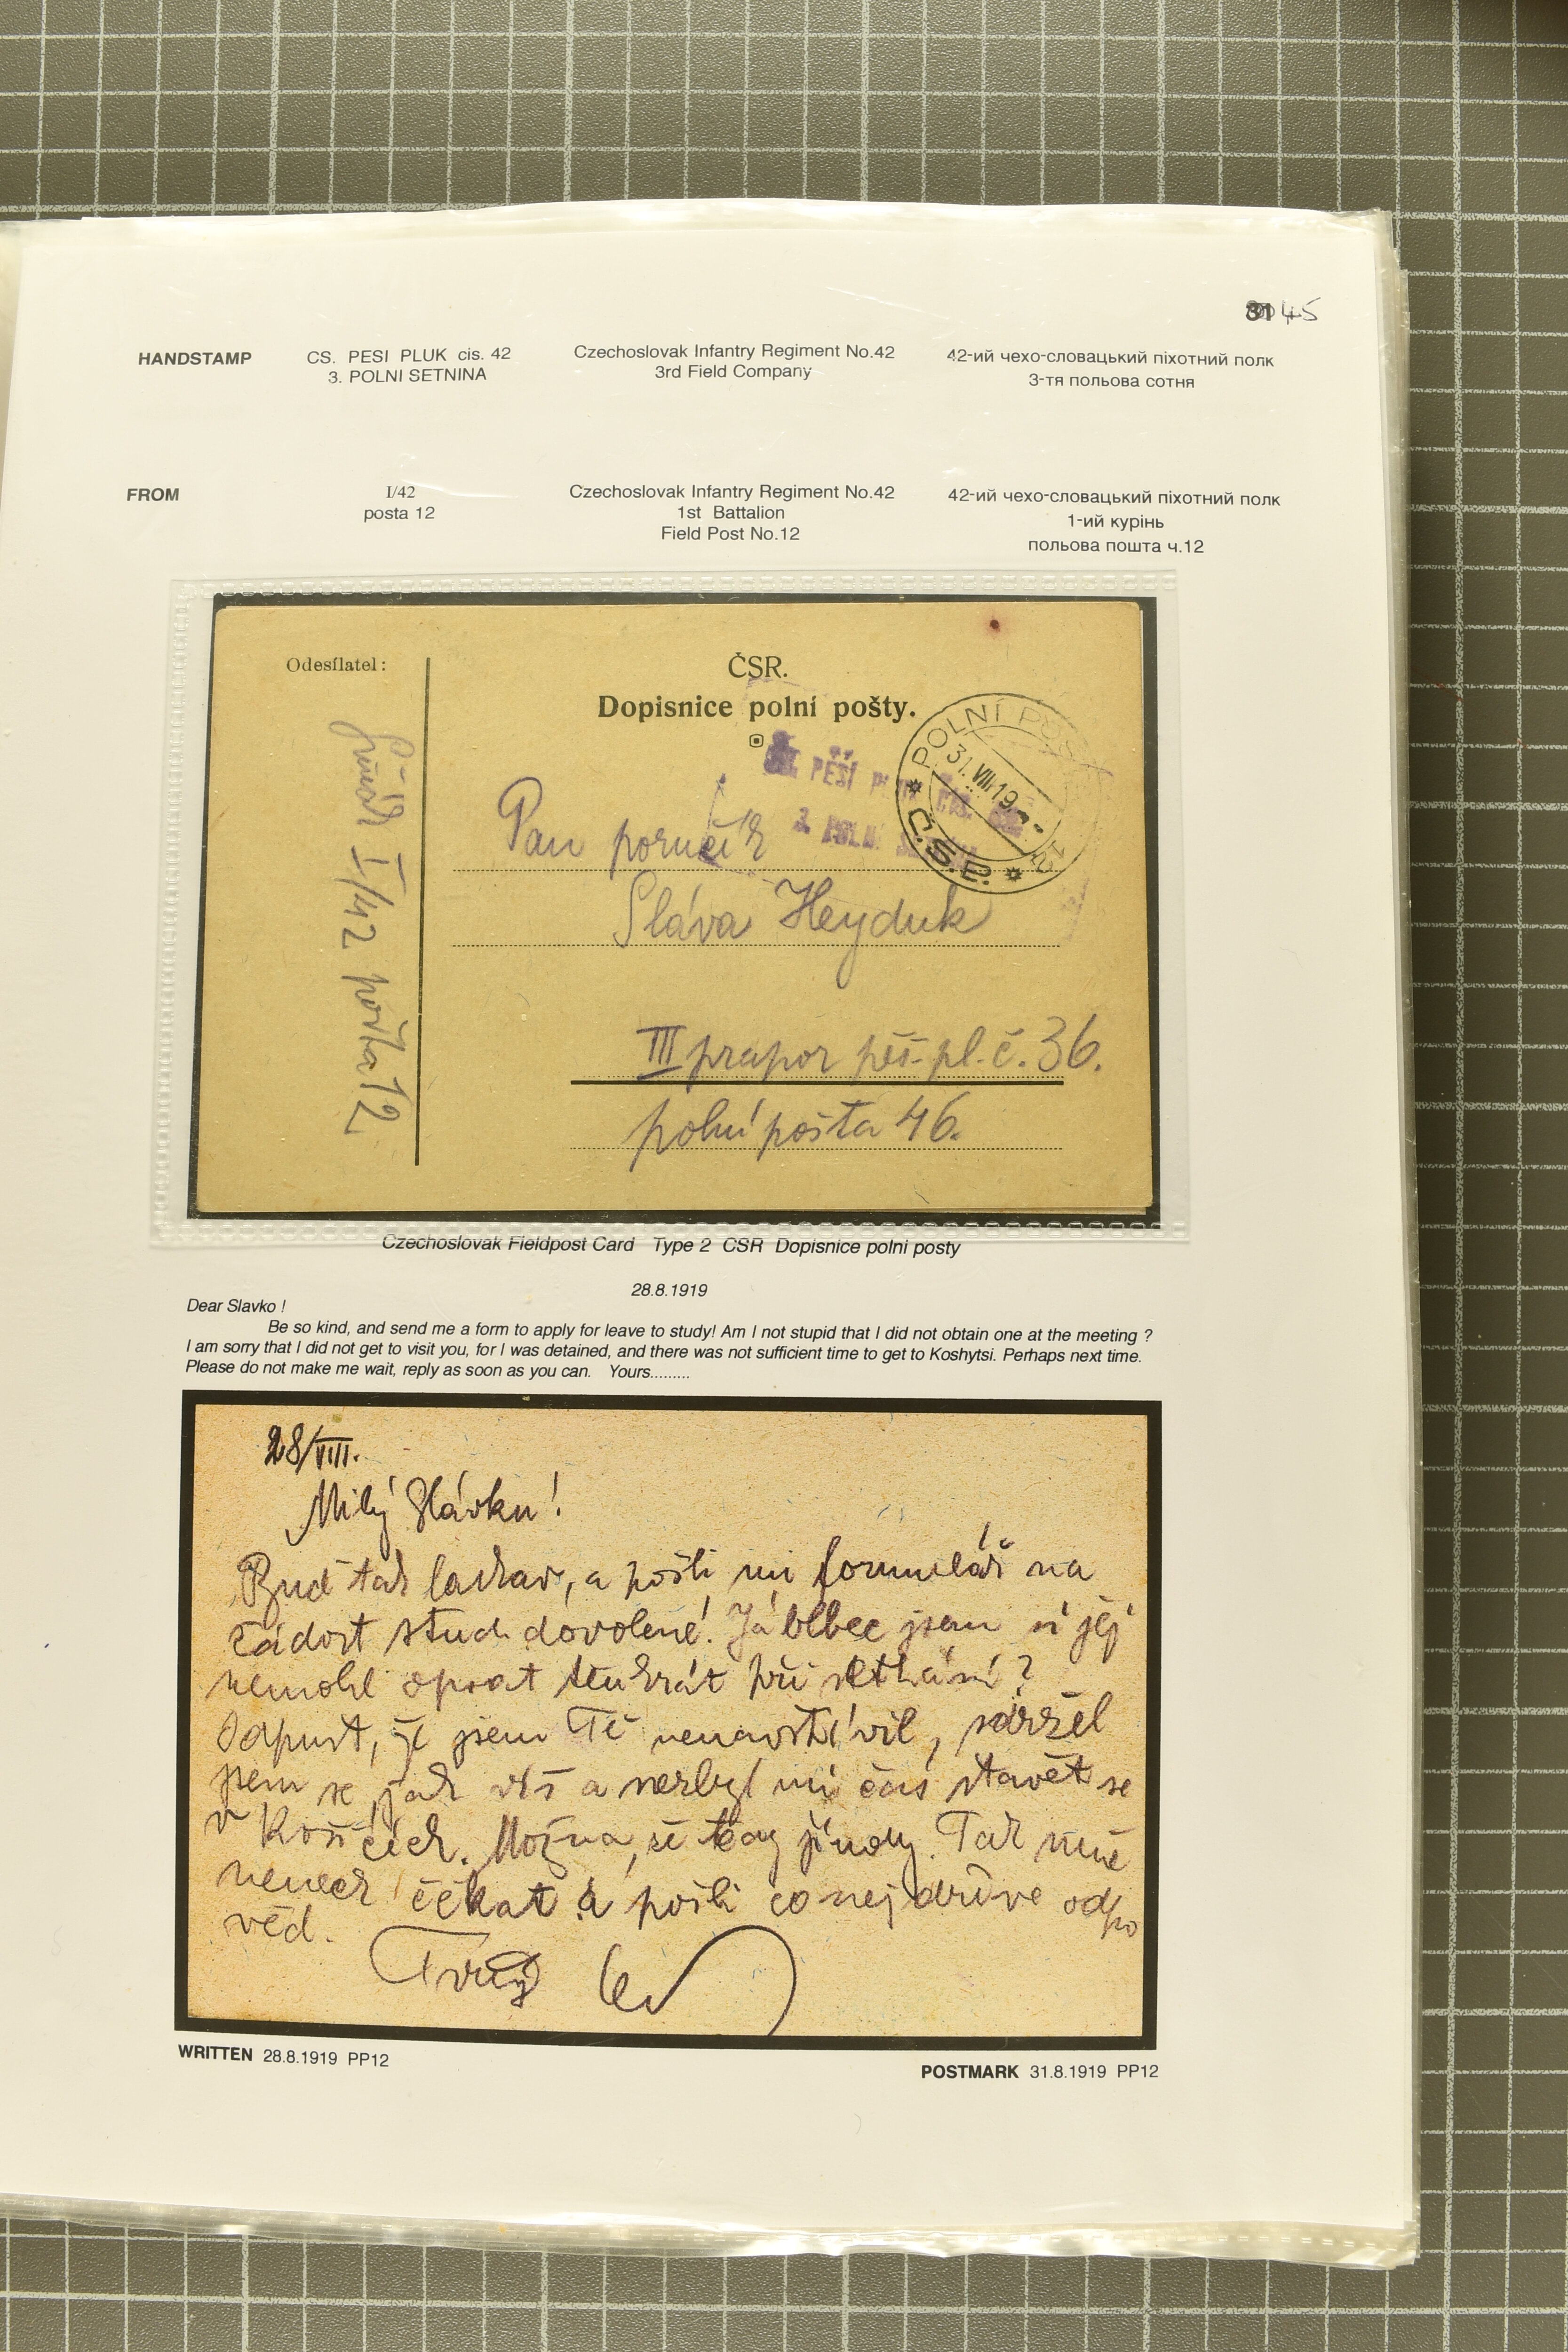 45
HANDSTAMP
CS. PESI PLUK cis. 42
3. POLNI SETNINA
Czechoslovak Infantry Regiment No.42
3rd Field Company
42-ий чехо-словацький піхотний полк
3-тя польова сотня
FROM
I/42
posta 12
Czechoslovak Infantry Regiment No.42
1st Battalion
Field Post No.12
42-ий чехо-словацький піхотний полк
1-ий курінь
польова пошта ч.12
Odesílatel:
I/42 pošta 12
ČSR.
Dopisnice polní pošty.
PĚŠÍ
3. POLNÍ
POLNÍ POŠTA
31.VIII.19
Č.S.P.
12
Pan poručík
Sláva Heyduk
III prapor pěš. pl. č. 36.
polní pošta 46.
Czechoslovak Fieldpost Card Type 2 CSR Dopisnice polni posty
28.8.1919
Dear Slavko !
Be so kind, and send me a form to apply for leave to study! Am I not stupid that I did not obtain one at the meeting ?
I am sorry that I did not get to visit you, for I was detained, and there was not sufficient time to get to Koshytsi. Perhaps next time.
Please do not make me wait, reply as soon as you can. Yours.........
28/VIII.
Milý Slávku!
Buď tak laskav, a pošli mi formulář na
žádost stud. dovolené! Já blbec jsem si jej
nemohl opsat tenkrát při setkání?
Odpusť, že jsem Tě nenavštívil, zdržel
jsem se jak víš a nezbyl mi čas stavět se
v Košicích. Možná, že jindy. Tak mne
nenech čekat a pošli co nejdříve odpo
věd.
Tvůj
WRITTEN 28.8.1919 PP12
POSTMARK 31.8.1919 PP12